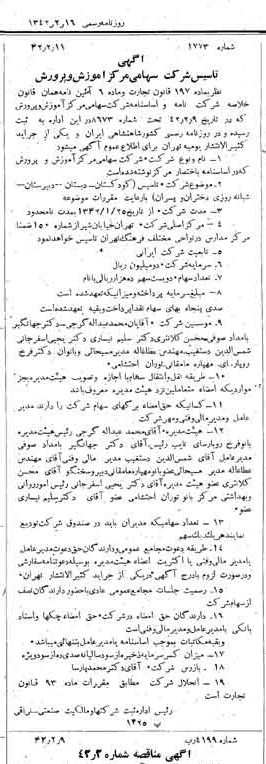 روزنامه رسمی ۱۶ر۲ر۱۳۴۲
شماره ۱۷۷۳ ۴۲ر۲ر۱۱
آگهی
تاسیس شرکت سهامی مرکز آموزش و پرورش
نظر بماده ۱۹۷ قانون تجارت و ماده ۶ آئین نامه همان قانون
خلاصه شرکت نامه و اساسنامه شرکت سهامی مرکز آموزش و پرورش
که در تاریخ ۴۲ر۲ر۹ تحت شماره ۸۶۷۳ در اداره به ثبت
رسیده و در روزنامه رسمی کشور شاهنشاهی ایران و یکی از جراید
کثیرالانتشار یومیه تهران برای اطلاع عموم آگهی میشود
۱ - نام و نوع شرکت • شرکت سهامی مرکز آموزش و پرورش
که در اساسنامه باختصار مرکز نوشته شده است
۲ - موضوع شرکت • تاسیس (کودکستان - دبستان - دبیرستان -
شبانه روزی دختران و پسران) بارعایت مقررات موضوعه
۳ - مدت شرکت • از تاریخ ۱۳۴۲/۱/۲۵ بمدت نامحدود
۴ - مرکز اصلی شرکت • تهران خیابان شیراز شماره ۱۵۰ ضمنا
مرکز مدارس در نواحی مختلف فرهنگ تهران تاسیس خواهد نمود
۵ - تابعیت شرکت ایرانی
۶ - سرمایه شرکت • دو میلیون ریال
۷ - تعداد سهام • دویست سهم ده هزار ریالی با نام
۸ - مبلغ سرمایه پرداخته و میزانیکه تعهد شده است
صدی پنجاه بهای سهام نقدا پرداخت و بقیه تعهد شده است
۹ - موسسین شرکت • آقایان محمد عبداله گرجی دکتر جهانگیر
بامداد صوفی محسن کلانتری دکتر سلیم نیساری دکتر یحیی اسفرجانی
شمس الدین دستغیب مهندس عطااله مدیر مسیحائی و بانوان دکتر فرخ
روپارسای مهپاره مامقانی توران احتشامی •
۱۰ - طریقه نقل و انتقال سهام با اجازه و تصویب هیئت مدیره بجز
مواردیکه امضاء متعاملین نزد هیئت مدیره معروف باشد
۱۱ - کسانیکه حق امضاء برگهای سهام شرکت را دارند مدیر
عامل و مدیر مالی و مهر شرکت
۱۲ - هیئت مدیره • آقای محمد عبداله گرجی رئیس هیئت مدیره
بانو فرخ روپارسای نایب رئیس آقای دکتر جهانگیر بامداد صوفی
مدیر عامل آقای شمس الدین دستغیب مدیر مالی و فنی آقای مهندس
عطااله مدیر مسیحائی عضو بانو مهپاره مامقانی دبیر و سخنگو آقای محسن
کلانتری عضو هیئت مدیره آقای دکتر یحیی اسفرجانی رئیس امور روانی
و بهداشتی مرکز بانو توران احتشامی عضو آقای دکتر سلیم نیساری
عضو •
۱۳ - تعداد سهامیکه مدیران باید در صندوق شرکت تودیع
نمایند هر یک یک سهم
۱۴ - طریقه دعوت مجامع عمومی و دارندگان حق دعوت مدیر عامل
یا مدیر مالی و فنی یا اکثریت اعضاء هیئت مدیره • بوسیله دعوتنامه سفارشی
و در صورت لزوم با درج آگهی در یکی از جراید کثیرالانتشار تهران •
۱۵ - رسمیت جلسات مجامع عمومی عادی با حضور دارندگان نصف
از سهام شرکت
۱۶ - دارندگان حق امضاء در شرکت • حق امضاء چکها و اسناد
بانکی با مدیر عامل و مدیر مالی و فنی است
و بقیه مکاتبات بموجب اساسنامه با مدیر عامل بتنهائی میباشد •
۱۷ - میزان کسر سرمایه ذخیره از سود سالیانه صدی ده از سود ویژه
۱۸ - بازرس شرکت • آقای دکتر محمد پارسا
۱۹ - انحلال شرکت مطابق مقررات ماده ۹۳ قانون
تجارت است
رئیس اداره ثبت شرکتها و مالکیت صنعتی - نراقی
پ ۱۴۲۵
شماره ۴۱۹۹رب ۴۲ر۲ر۹
آگهی مناقصه شماره ۴۲ر۲